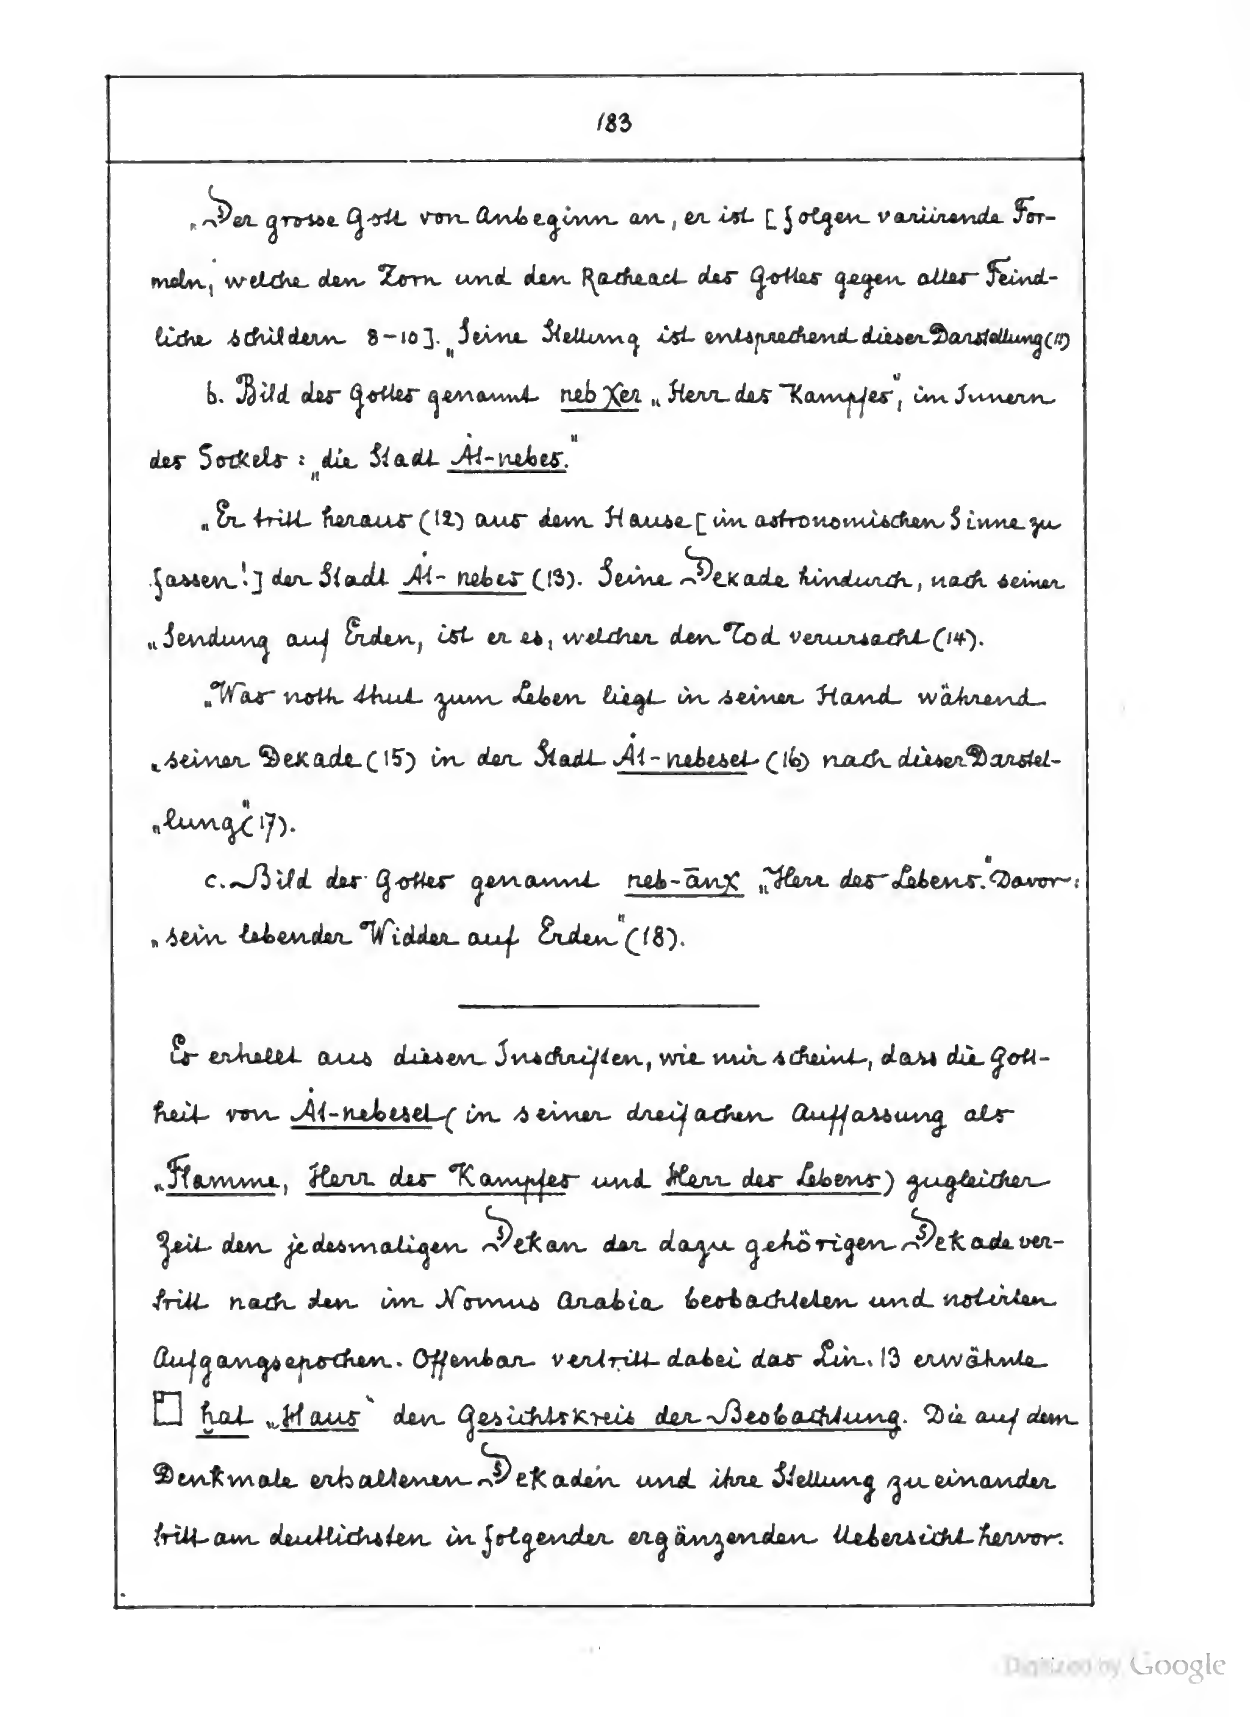 183
„Der grosse Gott von Anbeginn an, er ist [folgen variirende For-
meln, welche den Zorn und den Racheact des Gottes gegen alles Feind-
liche schildern 8-10]. „Seine Stellung ist entsprechend dieser Darstellung (11)
b. Bild des Gottes genannt neb χer „Herr des Kampfes", im Innern
des Sockels: „die Stadt Ȧt-nebes."
„Er tritt heraus (12) aus dem Hause [im astronomischen Sinne zu
fassen!] der Stadt Ȧt-nebes (13). Seine Dekade hindurch, nach seiner
„Sendung auf Erden, ist er es, welcher den Tod verursacht (14).
„Was noth thut zum Leben liegt in seiner Hand während
„seiner Dekade (15) in der Stadt Ȧt-nebeset (16) nach dieser Darstel-
„lung" (17).
c. Bild des Gottes genannt neb-ānχ „Herr des Lebens." Davor:
„sein lebender Widder auf Erden" (18).
Es erhellt aus diesen Inschriften, wie mir scheint, dass die Gott-
heit von Ȧt-nebeset (in seiner dreifachen Auffassung als
„Flamme, Herr des Kampfes und Herr des Lebens) zugleicher
Zeit den jedesmaligen Dekan der dazu gehörigen Dekade ver-
tritt nach den im Nomus Arabia beobachteten und notirten
Aufgangsepochen. Offenbar vertritt dabei das Lin. 13 erwähnte
ḫat „Haus" den Gesichtskreis der Beobachtung. Die auf dem
Denkmale erhaltenen Dekaden und ihre Stellung zu einander
tritt am deutlichsten in folgender ergänzenden Uebersicht hervor.
Digitized by Google